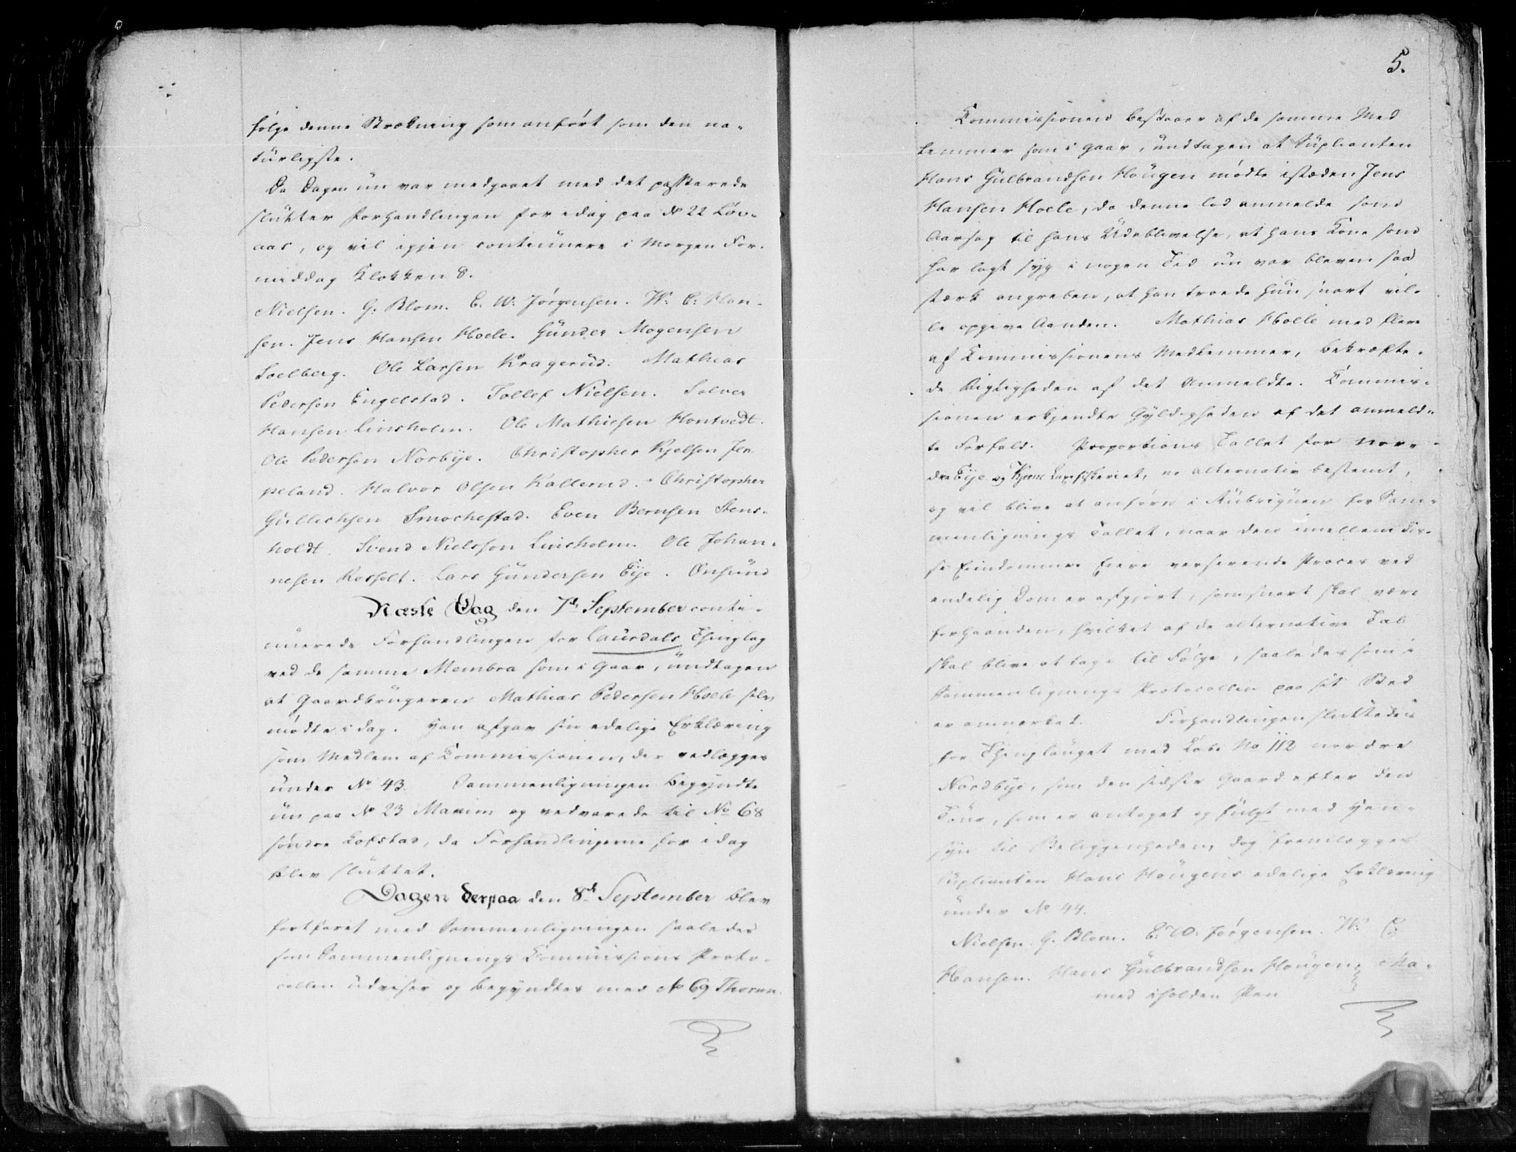 følge denne Strækning som anført som den na-
turligste.
Da Dagen nu var medgaaet med det passerede
sluttes Forhandlingen for idag paa No 22 Løv-
aas, og vil igjen continuere i Morgen For-
middag Klokken 8.
Nielsen. G. Blom. C. W. Jørgensen. W. C. Han-
sen. Jens Hansen Hoele. Gunder Mogensen
Soelberg. Ole Larsen Kragerud. Mathias
Pedersen Engelstad. Tollef Nielsen. Solver
Hansen Linsholm. Ole Mathiesen Hontvedt.
Ole Pedersen Norbye. Christopher Kjelsen
peland. Halvor Olsen Kallerud. Christopher
Gullichsen Smørhestad. Even Bernsen Stens-
holdt. Svend Nielsen Linsholm. Ole Johan-
nesen Rosholt. Lars Gundersen Eye. Onsund
Næste Dag den 7de September conti-
nuerede Forhandlingen for Laurdals Thinglag
ved de samme Membra som i Gaar, undtagen
at Gaardbrugeren Mathias Pedersen Hoele selv
mødte i dag. Han afgav sin edelige Erklæring
som Medlem af Commissionen, der vedlægges
under No 43. Sammenligningen begyndte
nu paa No 23 Maurin og vedvarede til No 68
søndre Lofstad, da Forhandlingerne for idag
blev sluttet.
Dagen derpaa den 8de September blev
fortfaret med Sammenligningen saaledes
som Sammenlignings Commissions Proto-
collen udviser og begyndtes med No 69 Thorun
5.
Commissionen bestaaer af de samme Med
lemmer som i Gaar, undtagen at Suplianten
Hans Gulbrandsen Hougen mødte isteden Jens
Hansen Hoele, da denne lod anmelde som
Aarsag til hans Udeblivelse, at hans Kone som
har lagt syg i nogen Tid nu var bleven saa
stærk angreben, at han troede hun snart vil-
le opgive Aanden. Mathias Hoele med flere
af Commissionens Medlemmer, bekræfte-
de Rigtigheden af det Anmeldte. Commis-
sionen erkjendte Gyldigheden af det anmeld-
te Forfald. Proportions Tallet for nor-
dre Eye og Laxefiskeriet, er alternativ bestemt,
og vil blive at anføre i Rubriquen for Sam-
menlignings Tallet, naar den imellem Dis-
se Eiendommes Eiere verserende Proces ved
endelig Dom er afgjort, som snart skal være
forhaanden, hvilket af de alternative Tal
skal blive at tage til Følge, saaledes som i
Sammenlignings Protocollen paa sit Sted
er anmærket. Forhandlingen sluttedes
for Thinglauget med Løbe No 112 nordre
Nordbye, som den sidste Gaard efter den
Tour, som er antaget og fulgt med Hen-
syn til Beliggenheden, dog fremlægges
Suplianten Hans Hougens edelige Erklæring
under No 44.
Nielsen. G. Blom. C. W. Jørgensen. W. C.
Hansen. Hans Gulbrandsen Hougen, Ma-
med iholden Pen